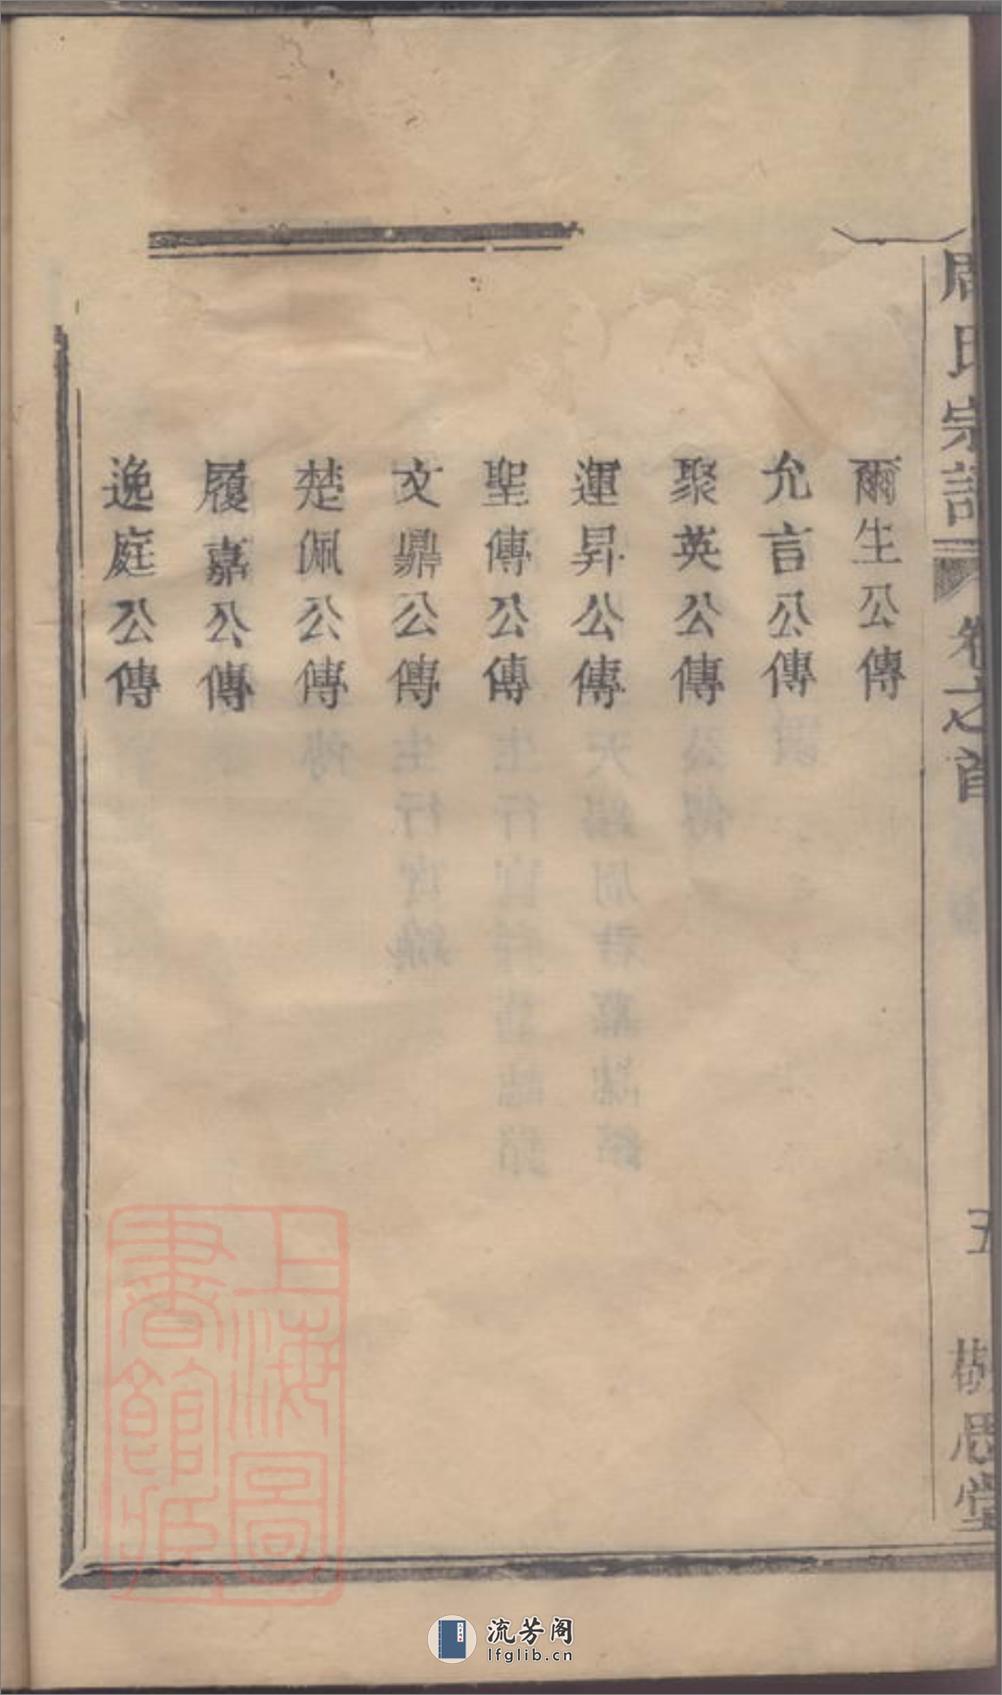 周氏宗譜
卷之首
五
敬思堂
爾生公傳
允言公傳
聚英公傳
運昇公傳
聖傳公傳
文鼎公傳
楚佩公傳
履嘉公傳
逸庭公傳
上海圖
書館藏
流芳阁
lfglib.cn